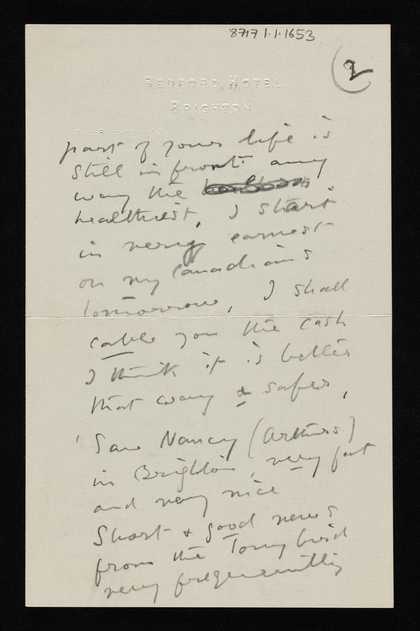 8717.1.1.1653
2
BEDFORD HOTEL
BRIGHTON
part of your life is
still in front any
way the
healthiest, I start
in very earnest
on my Canadians
tomorrow, I shall
cable you the cash
I think it is better
that way & safer,
Saw Nancy (Arthurs)
in Brighton, very fat
and very nice
Short & good news
from the Tony bird
very frequently